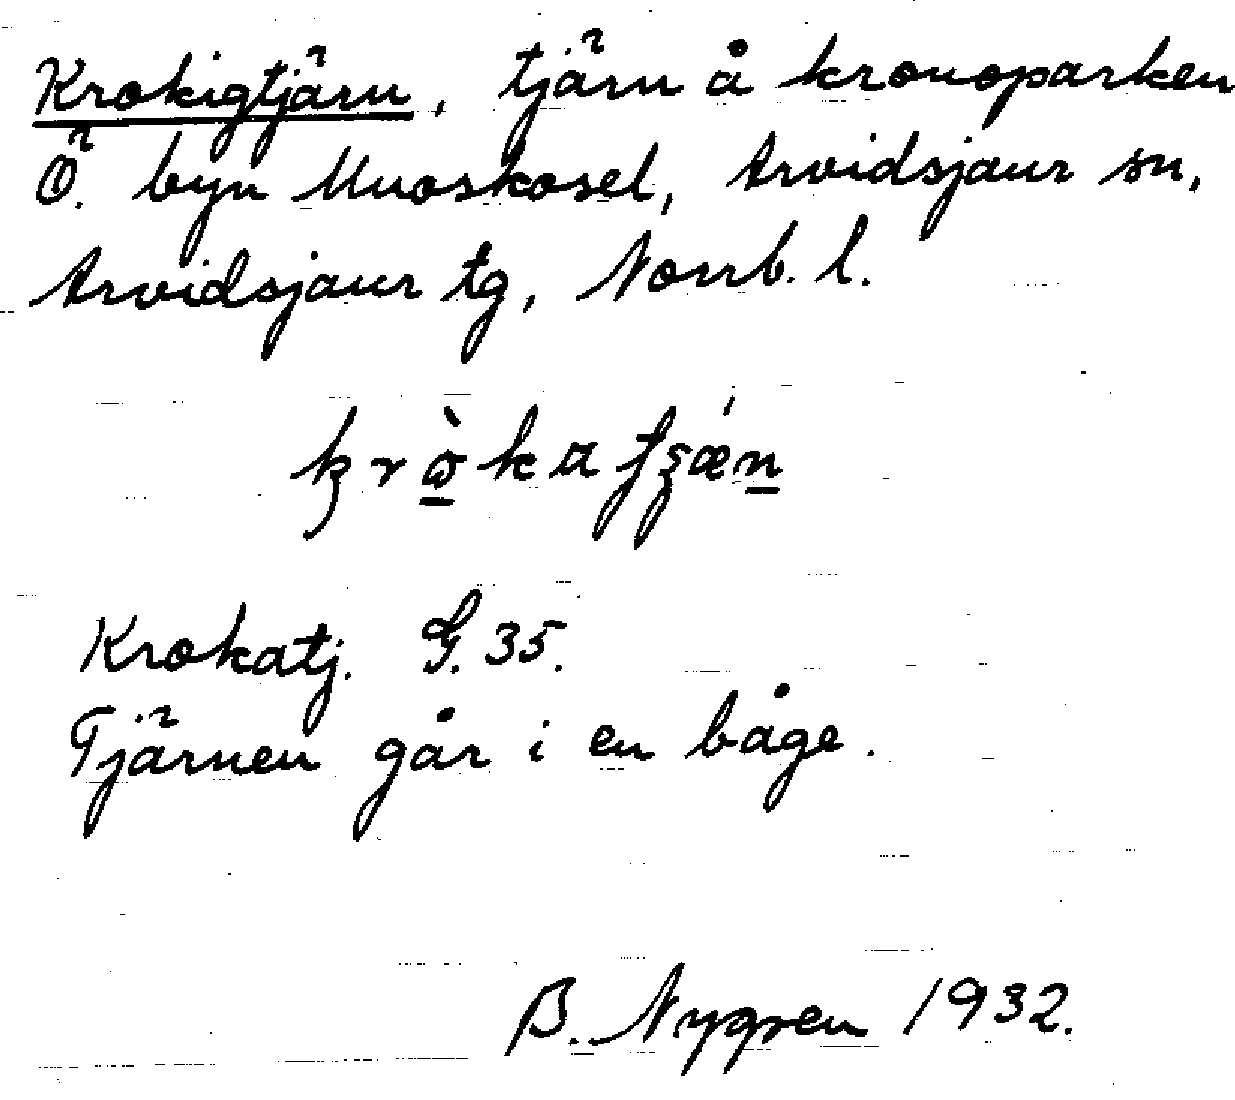 Krokigtjärn, tjärn å kronoparken
Ö. byn Muoskosel, Arvidsjaur sn,
Arvidsjaur tg, Norrb. l.
Krokatj. G. 35.
Tjärnen går i en båge.
B. Nygren 1932.